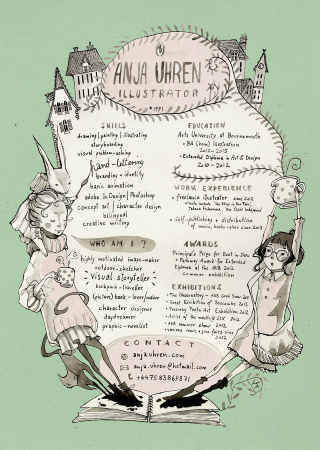 ANJA UHREN
ILLUSTRATOR
* 1991
SKILLS
drawing/painting/illustrating
storyboarding
visual problem-solving
hand-lettering
branding + identity
basic animation
adobe InDesign/Photoshop
concept art/character design
bilingual
creative writing
WHO AM I ?
highly motivated image-maker
outdoor-sketcher
visual storyteller
backpack-traveller
(picture) book-lover/maker
character designer
daydreamer
graphic-novelist
EDUCATION
Arts University of Bournemouth
• BA (hons) Illustration
2012-2015
• Extended Diploma in Art & Design
2010-2012
WORK EXPERIENCE
• freelance illustrator since 2012
• self-publishing + distribution
of comics/books + zines since 2012
AWARDS
Principal's Prize for Best in Show
+ Pathway Award for Extended
Diploma at the AUB 2012
summer exhibition
EXHIBITIONS
• AUB summer show 2012
CONTACT
anjauhren.com
anja.uhren@hotmail.com